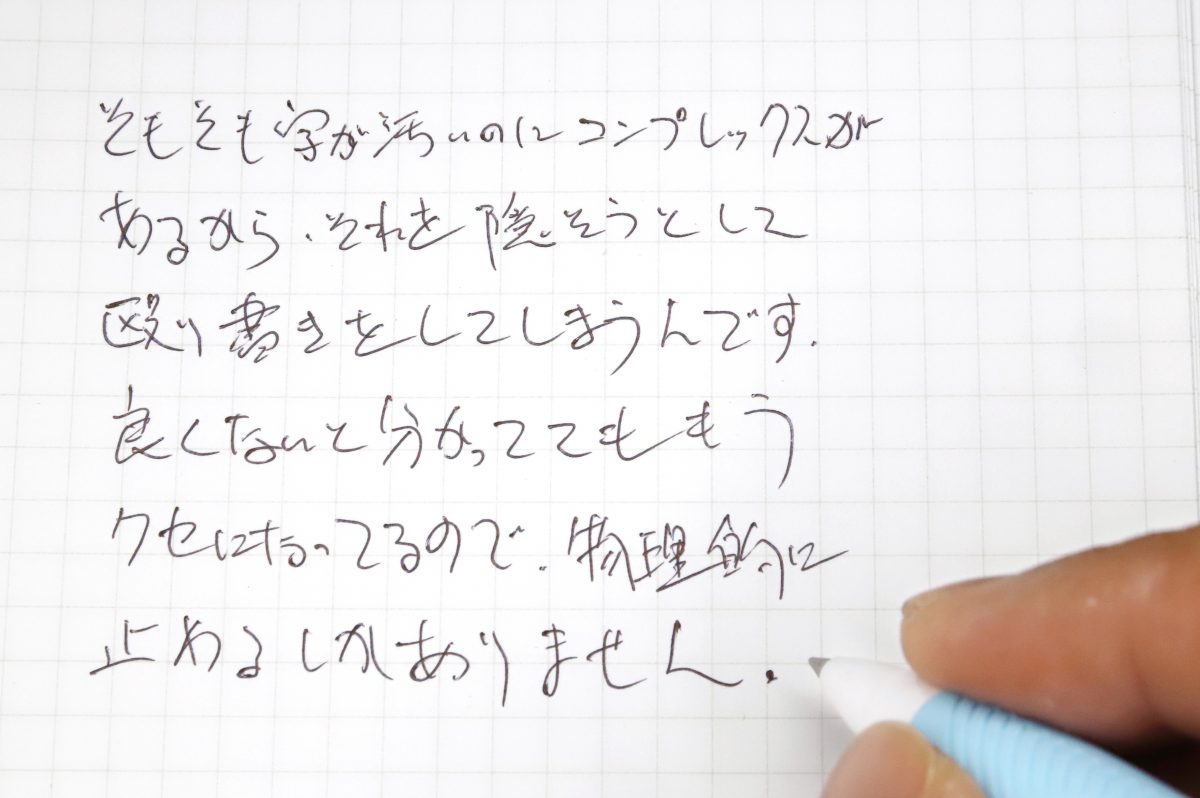 そもそも字が汚いのにコンプレックスが
あるから、それを隠そうとして
殴り書きをしてしまうんです。
良くないと分かっててももう
クセになってるので、物理的に
止めるしかありません。